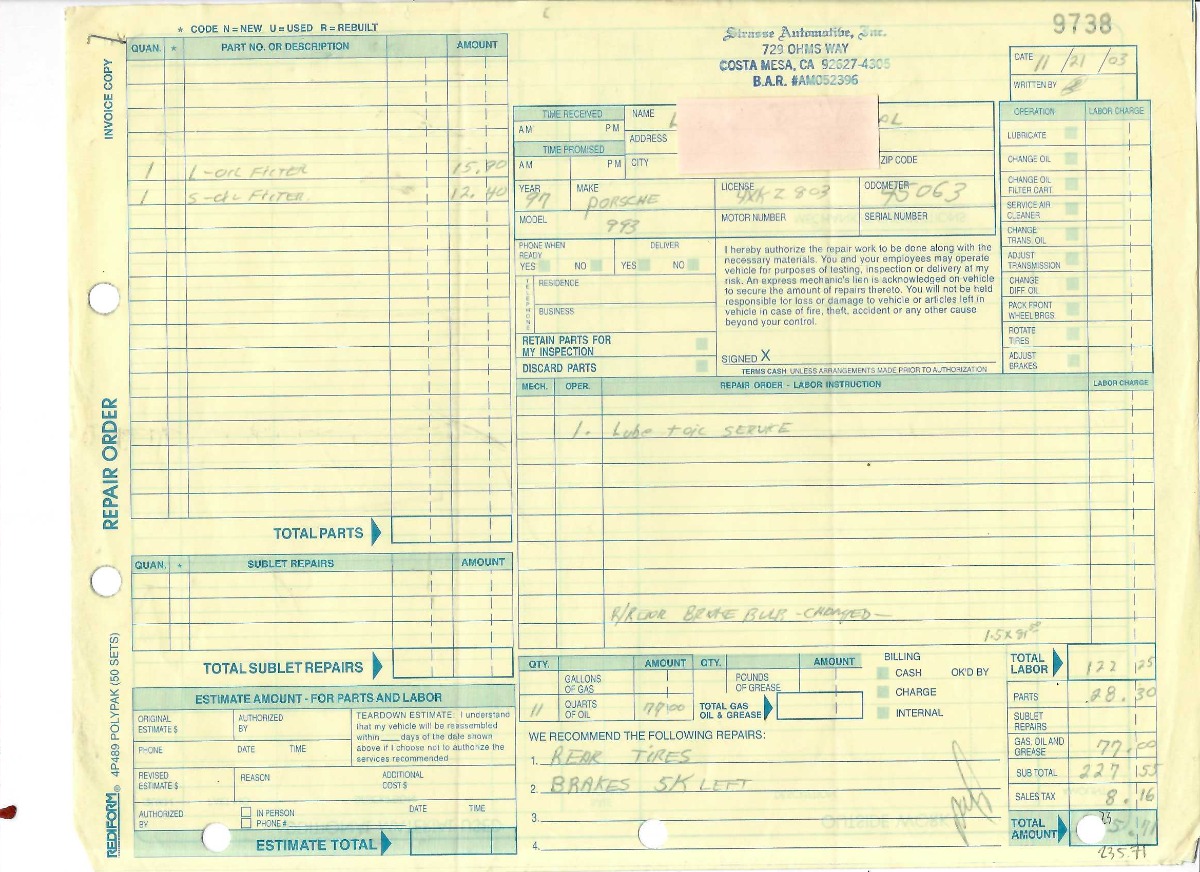 * CODE N = NEW U = USED R = REBUILT
QUAN. * PART NO. OR DESCRIPTION AMOUNT
1 L-OIL FILTER 15.90
1 S-OIL FILTER 12.40
TOTAL PARTS
QUAN. * SUBLET REPAIRS AMOUNT
TOTAL SUBLET REPAIRS
ESTIMATE AMOUNT - FOR PARTS AND LABOR
ORIGINAL ESTIMATE $
AUTHORIZED BY
PHONE DATE TIME
TEARDOWN ESTIMATE. I understand
that my vehicle will be reassembled
within ____ days of the date shown
above if I choose not to authorize the
services recommended
REVISED ESTIMATE $
REASON
ADDITIONAL COST $
AUTHORIZED BY
IN PERSON
PHONE #
DATE TIME
ESTIMATE TOTAL
INVOICE COPY
REPAIR ORDER
REDIFORM® 4P489 POLYPAK (50 SETS)
Strasse Automotive, Inc.
729 OHMS WAY
COSTA MESA, CA 92627-4305
B.A.R. #AM052396
9738
DATE 11/21/03
WRITTEN BY
TIME RECEIVED
AM PM
TIME PROMISED
AM PM
NAME
ADDRESS
CITY ZIP CODE
YEAR 97
MAKE PORSCHE
LICENSE 4XKZ803
ODOMETER 95063
MODEL 993
MOTOR NUMBER
SERIAL NUMBER
PHONE WHEN READY
YES NO
DELIVER
YES NO
TELEPHONE
RESIDENCE
BUSINESS
RETAIN PARTS FOR
MY INSPECTION
DISCARD PARTS
I hereby authorize the repair work to be done along with the
necessary materials. You and your employees may operate
vehicle for purposes of testing, inspection or delivery at my
risk. An express mechanic's lien is acknowledged on vehicle
to secure the amount of repairs thereto. You will not be held
responsible for loss or damage to vehicle or articles left in
vehicle in case of fire, theft, accident or any other cause
beyond your control.
SIGNED X
TERMS CASH UNLESS ARRANGEMENTS MADE PRIOR TO AUTHORIZATION
OPERATION LABOR CHARGE
LUBRICATE
CHANGE OIL
CHANGE OIL
FILTER CART.
SERVICE AIR
CLEANER
CHANGE
TRANS. OIL
ADJUST
TRANSMISSION
CHANGE
DIFF. OIL
PACK FRONT
WHEEL BRGS.
ROTATE
TIRES
ADJUST
BRAKES
MECH. OPER. REPAIR ORDER - LABOR INSTRUCTION LABOR CHARGE
1. Lube + oil SERVICE
R/REAR BRAKE BULB - CHANGED -
QTY. AMOUNT QTY. AMOUNT
GALLONS OF GAS
POUNDS OF GREASE
11 QUARTS OF OIL 77 00
TOTAL GAS
OIL & GREASE
BILLING
CASH OK'D BY
CHARGE
INTERNAL
WE RECOMMEND THE FOLLOWING REPAIRS:
1. REAR TIRES
2. BRAKES 5K LEFT
3.
4.
TOTAL LABOR 122 25
PARTS 28.30
SUBLET REPAIRS
GAS, OIL AND GREASE 77.00
SUB TOTAL 227 55
SALES TAX 8.16
TOTAL AMOUNT
235.71